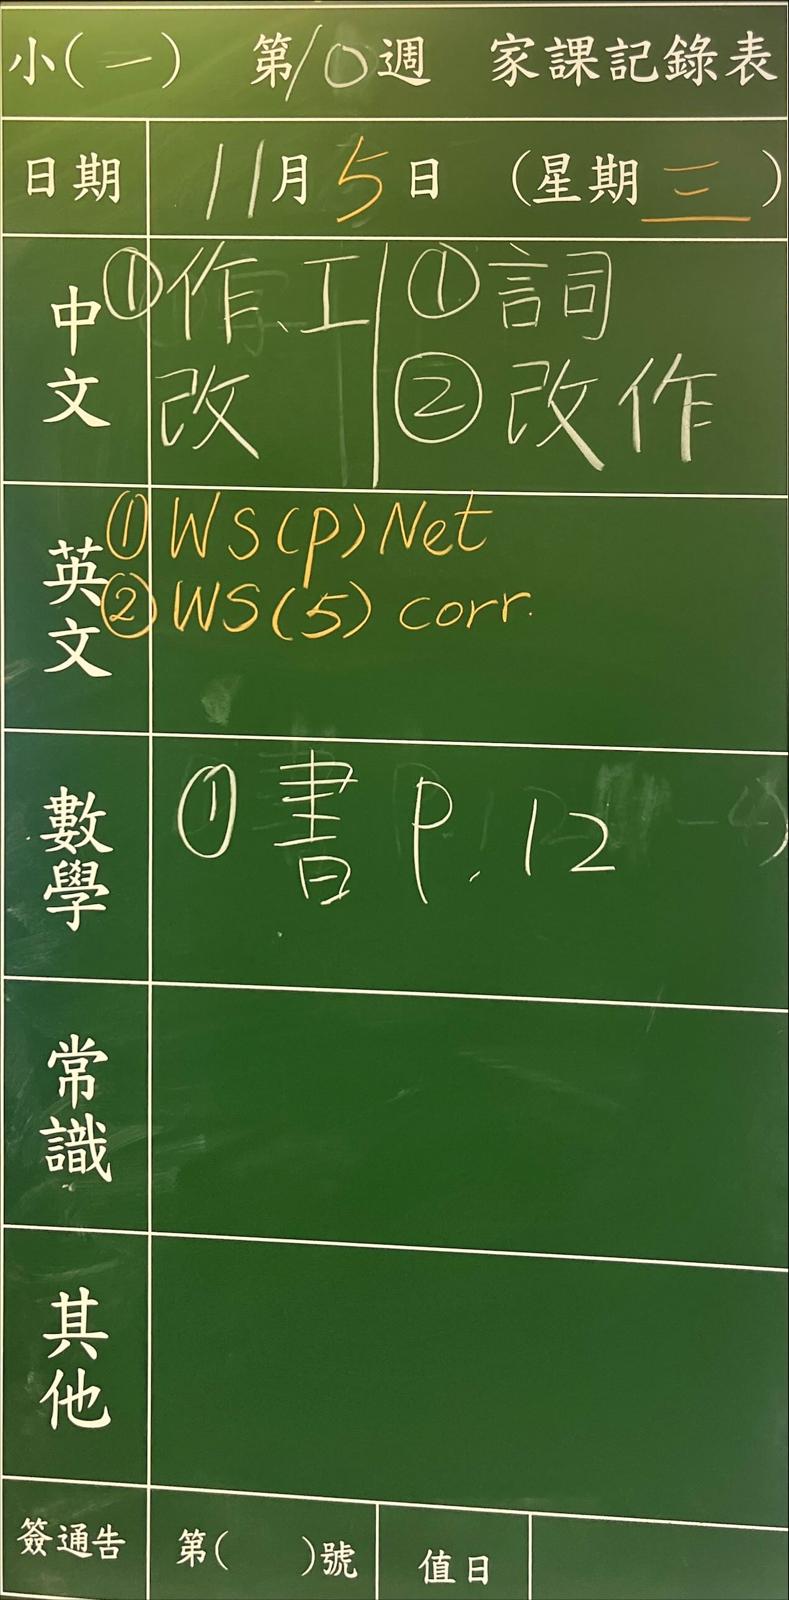 小(一) 第10週 家課記錄表
日期 11月5日 (星期三)
中文
①作、工 ①詞
改 ②改作
英文
①WS(p)Net
②WS(5) corr.
數學
①書 P.12
常識
其他
簽通告 第( )號 值日